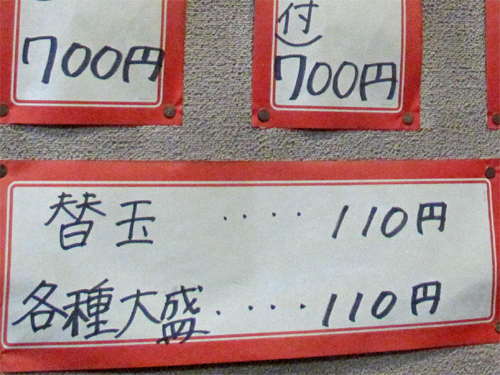 700円
付)
700円
替玉 ････ 110円
各種大盛 ････ 110円